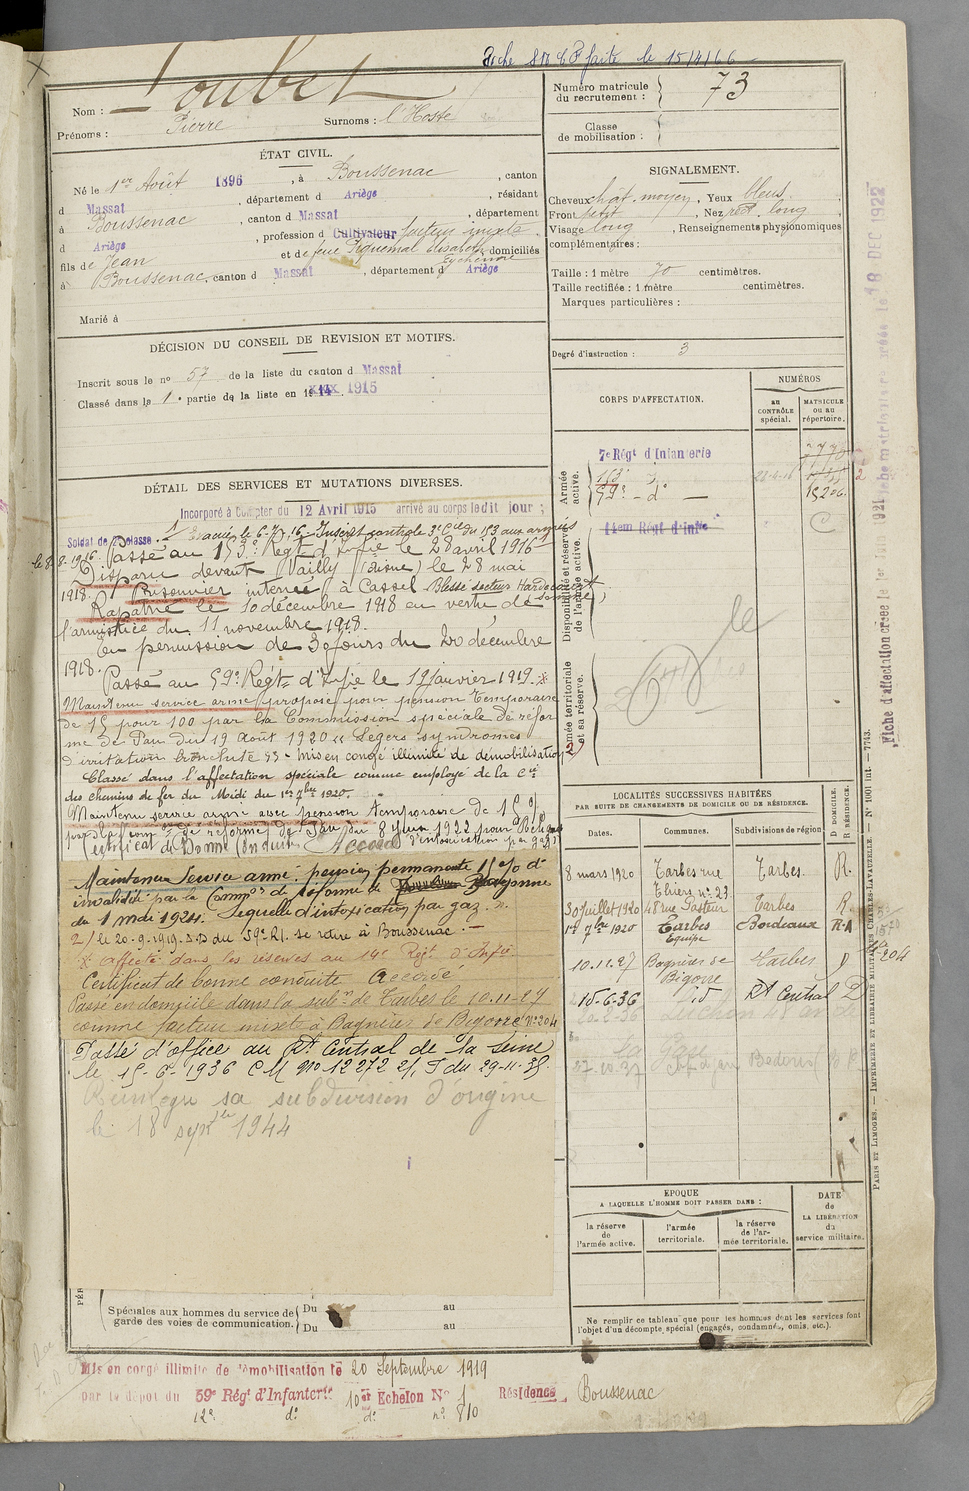 Fiche SM & P faite le 15/4/66
Nom : Loubet
Prénoms : Pierre Surnoms : l'Hoste
Numéro matricule du recrutement : 73
Classe de mobilisation :
ÉTAT CIVIL.
Né le 1er Août 1896, à Boussenac, canton
d Massat, département d Ariège, résidant
à Boussenac, canton d Massat, département
d Ariège, profession d Cultivateur facteur mixte
fils de Jean et de feue Piquemal Elisabeth Eychenne domiciliés
à Boussenac, canton d Massat, département d Ariège
Marié à
SIGNALEMENT.
Cheveux chât. moyen, Yeux bleus,
Front petit, Nez rect. long,
Visage long, Renseignements physionomiques
complémentaires :
Taille : 1 mètre 70 centimètres.
Taille rectifiée : 1 mètre centimètres.
Marques particulières :
Degré d'instruction : 3
DÉCISION DU CONSEIL DE REVISION ET MOTIFS.
Inscrit sous le no 57 de la liste du canton d Massat
Classé dans la 1e partie de la liste en 1914 1915
CORPS D'AFFECTATION.
NUMÉROS
au CONTRÔLE spécial.
MATRICULE ou au répertoire.
Armée active.
7e Régt d'Infanterie
153e d°
59e - d° -
15206
Disponibilité et réserve de l'armée active.
14em Régt d'Infie
Armée territoriale et sa réserve.
DÉTAIL DES SERVICES ET MUTATIONS DIVERSES.
Incorporé à compter du 12 Avril 1915 arrivé au corps ledit jour ;
Soldat de 2e classe.
Passé au 153e Régt d'Infie le 28 avril 1916
Disparu devant Vailly (Aisne) le 28 mai
1918. Prisonnier interné à Cassel Blessé secteur Hardecourt Somme le 8-8-1916
Rapatrié le 10 décembre 1918 en vertu de
l'armistice du 11 novembre 1918.
En permission de 30 jours du 20 décembre
1918.
Passé au 59e Régt d'Infie le 12 janvier 1919.
Maintenu service armé, proposé pour pension temporaire
de 15 pour 100 par la Commission spéciale de réfor
me de Pau du 19 Août 1920 "Légers syndromes
d'irritation bronchite" - mis en congé illimité de démobilisation
Classé dans l'affectation spéciale comme employé de la Cie
des chemins de fer du Midi du 1er 7bre 1920.
Maintenu service armé avec pension temporaire de 15 %
Certificat de Bonne Conduite Accordé
Maintenu Service armé : pension permanente 15 % d'
invalidité par la Common de réforme de Bayonne
du 1 mai 1924. Sequelle d'intoxication par gaz.
2/ le 20-9-1919. S.D du 59e R.I. se retire à Boussenac.
Affecté dans les réserves au 14e Régt d'Infie
Certificat de bonne conduite Accordé
Passé en domicile dans la subon de Tarbes le 10-11-27
comme facteur mixte à Bagnères de Bigorre No 204
Passé d'office au Rt Central de la Seine
le 15-6-1936 CM No 12272 2/1 T du 29-11-35.
Réintègre sa subdivision d'origine
le 18 sept 1944
LOCALITÉS SUCCESSIVES HABITÉES
PAR SUITE DE CHANGEMENTS DE DOMICILE OU DE RÉSIDENCE.
Dates. Communes. Subdivisions de région. D DOMICILE. R RÉSIDENCE.
8 mars 1920 Tarbes rue Thiers no 23 Tarbes R.
30 juillet 1920 48 rue Pasteur Tarbes R
1er 7bre 1920 Tarbes Equipe Bordeaux R-A
10.11.27 Bagnères de Bigorre Tarbes D 204
15-6-36 id Rt Central D
20-8-36 Luchon 48 av de
la Gare
27-10-37
EPOQUE
A LAQUELLE L'HOMME DOIT PASSER DANS :
la réserve de l'armée active.
l'armée territoriale.
la réserve de l'armée territoriale.
DATE de LA LIBÉRATION du service militaire.
Spéciales aux hommes du service de garde des voies de communication.
Du au
Du au
Ne remplir ce tableau que pour les hommes dont les services font
l'objet d'un décompte spécial (engagés, condamnés, omis, etc.).
Mis en congé illimité de démobilisation le 20 Septembre 1919
par le dépôt du 59e Régt d'Infanterie 10em Echelon No 1 Résidence Boussenac
12e d° d° no 810
PARIS ET LIMOGES. — IMPRIMERIE ET LIBRAIRIE MILITAIRES CHARLES-LAVAUZELLE. — No 1001 int. — 7743.
18 DEC 1922